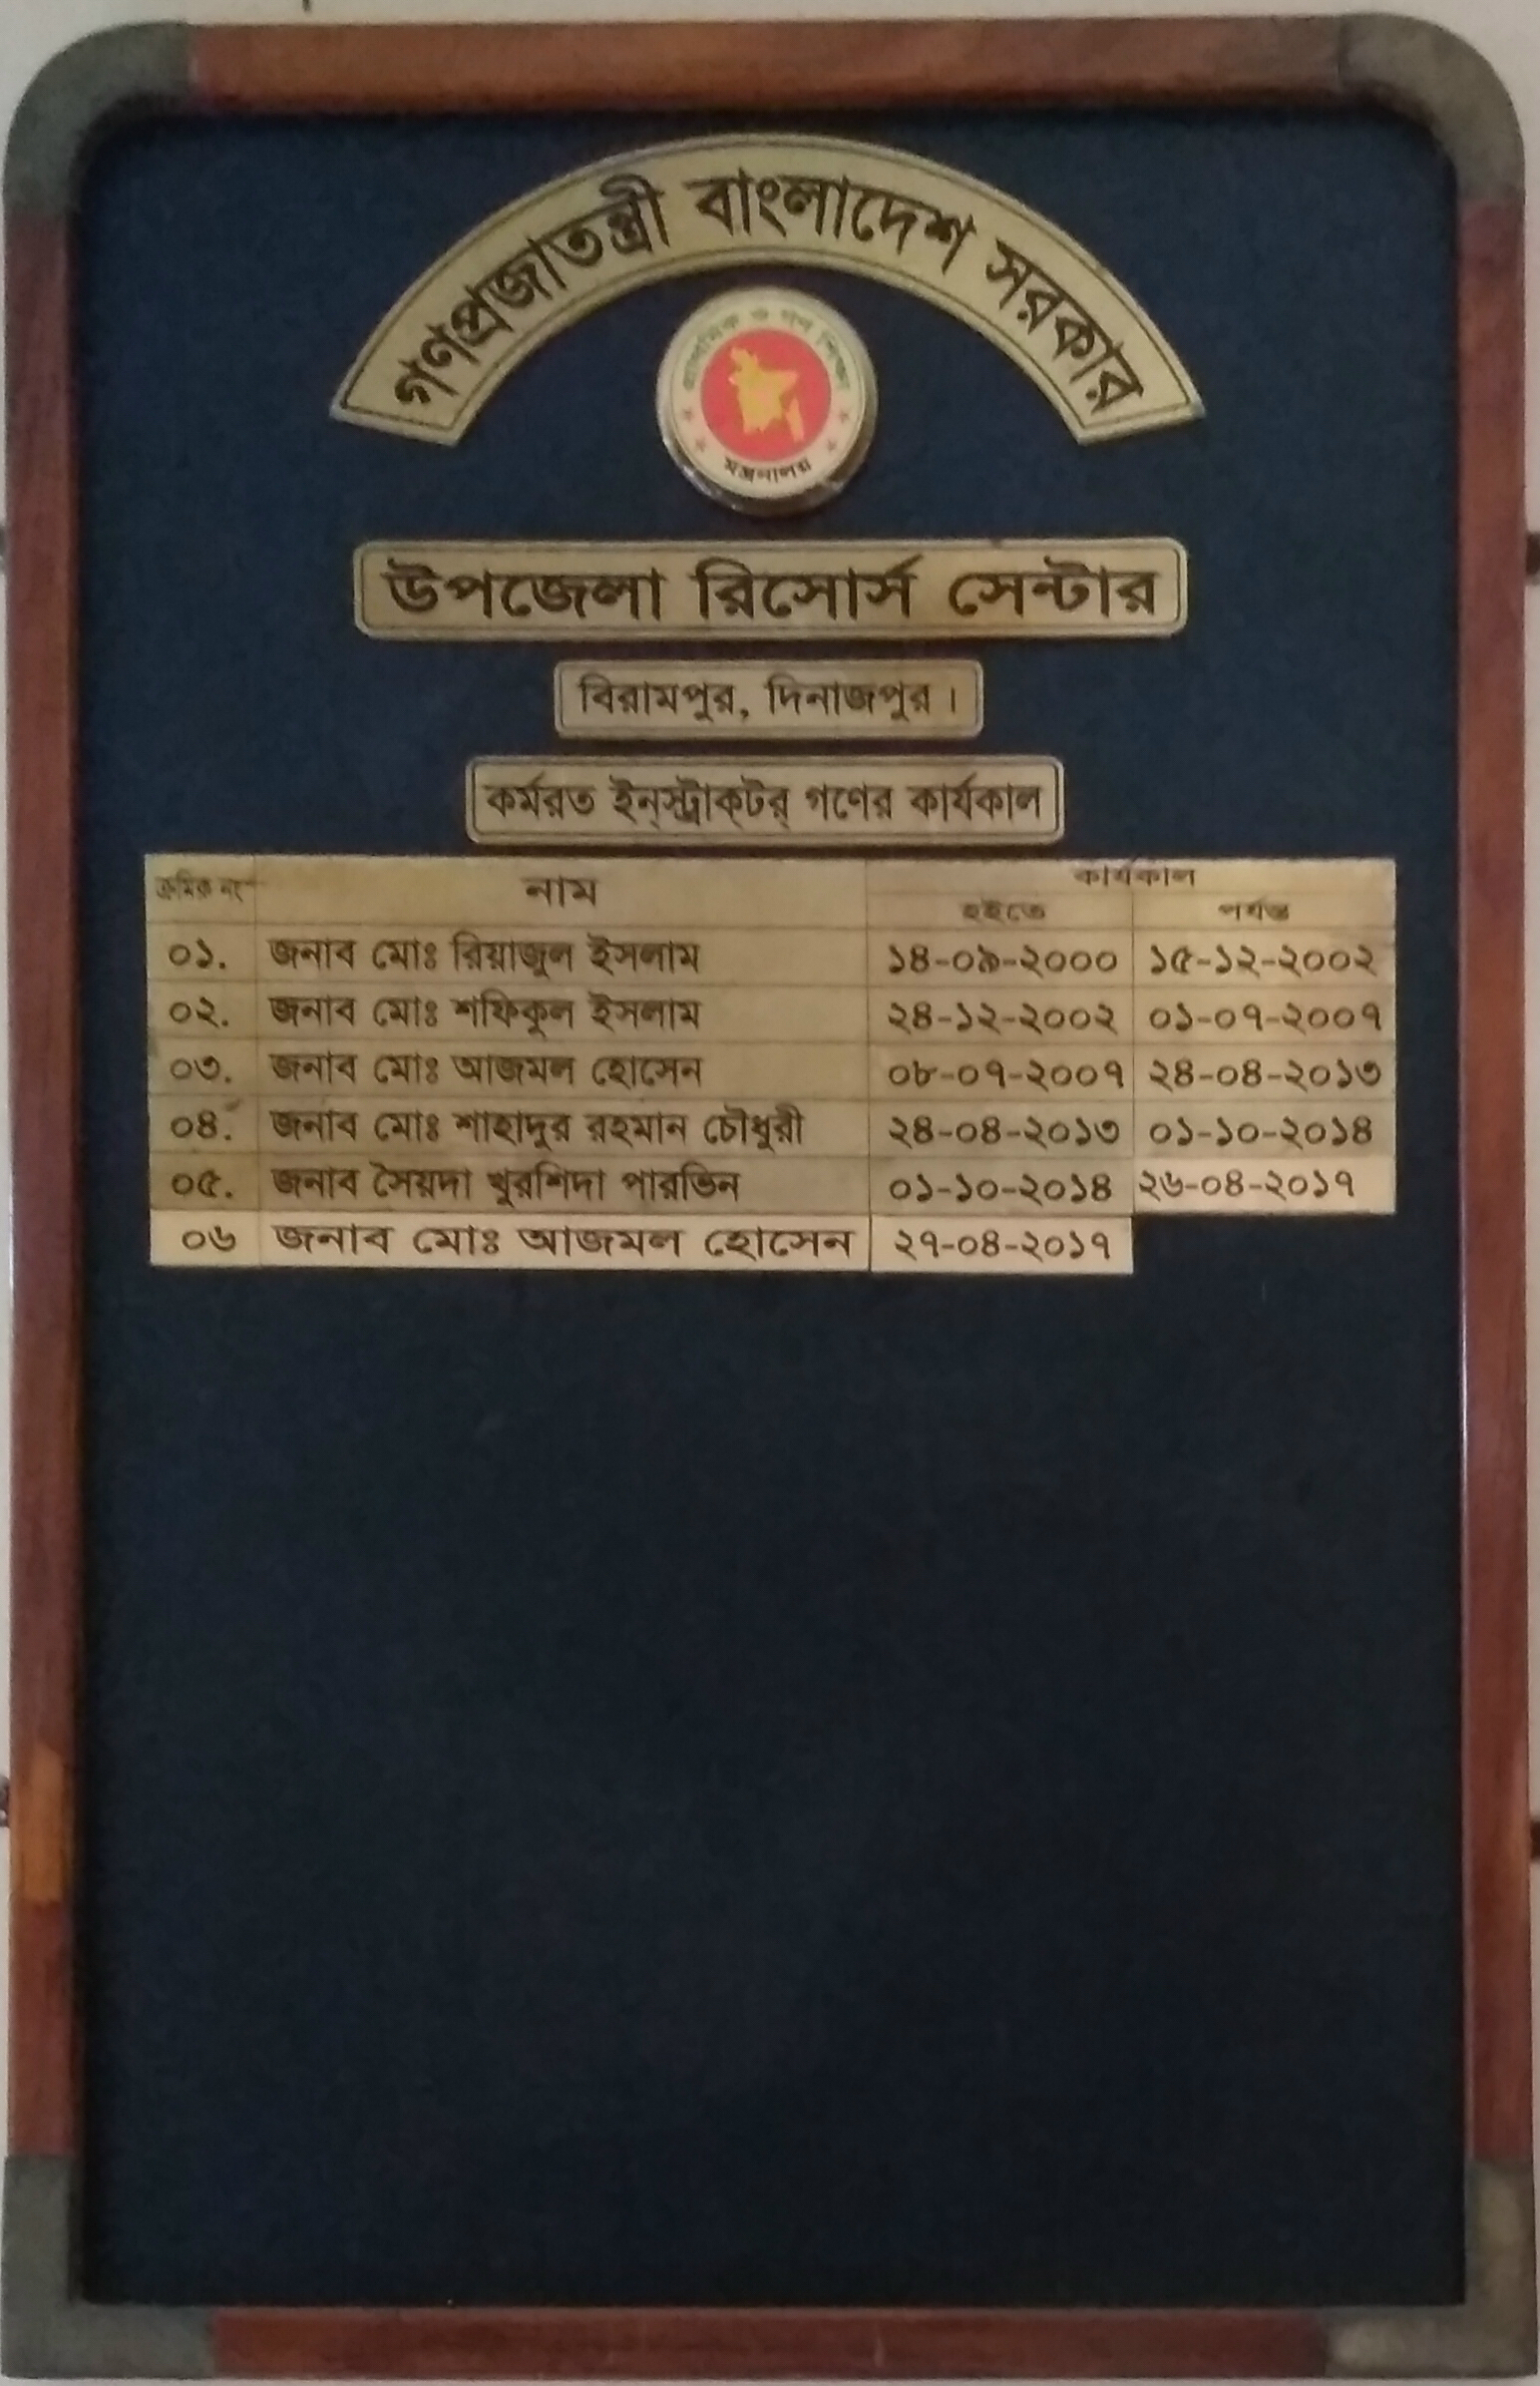 গণপ্রজাতন্ত্রী বাংলাদেশ সরকার
প্রাথমিক ও গণ শিক্ষা
মন্ত্রনালয়
উপজেলা রিসোর্স সেন্টার
বিরামপুর, দিনাজপুর।
কর্মরত ইন্‌স্ট্রাক্‌টর্ গণের কার্যকাল
ক্রমিক নং নাম কার্যকাল
হইতে পর্যন্ত
০১. জনাব মোঃ রিয়াজুল ইসলাম ১৪-০৯-২০০০ ১৫-১২-২০০২
০২. জনাব মোঃ শফিকুল ইসলাম ২৪-১২-২০০২ ০১-০৭-২০০৭
০৩. জনাব মোঃ আজমল হোসেন ০৮-০৭-২০০৭ ২৪-০৪-২০১৩
০৪. জনাব মোঃ শাহাদুর রহমান চৌধুরী ২৪-০৪-২০১৩ ০১-১০-২০১৪
০৫. জনাব সৈয়দা খুরশিদা পারভিন ০১-১০-২০১৪ ২৬-০৪-২০১৭
০৬ জনাব মোঃ আজমল হোসেন ২৭-০৪-২০১৭